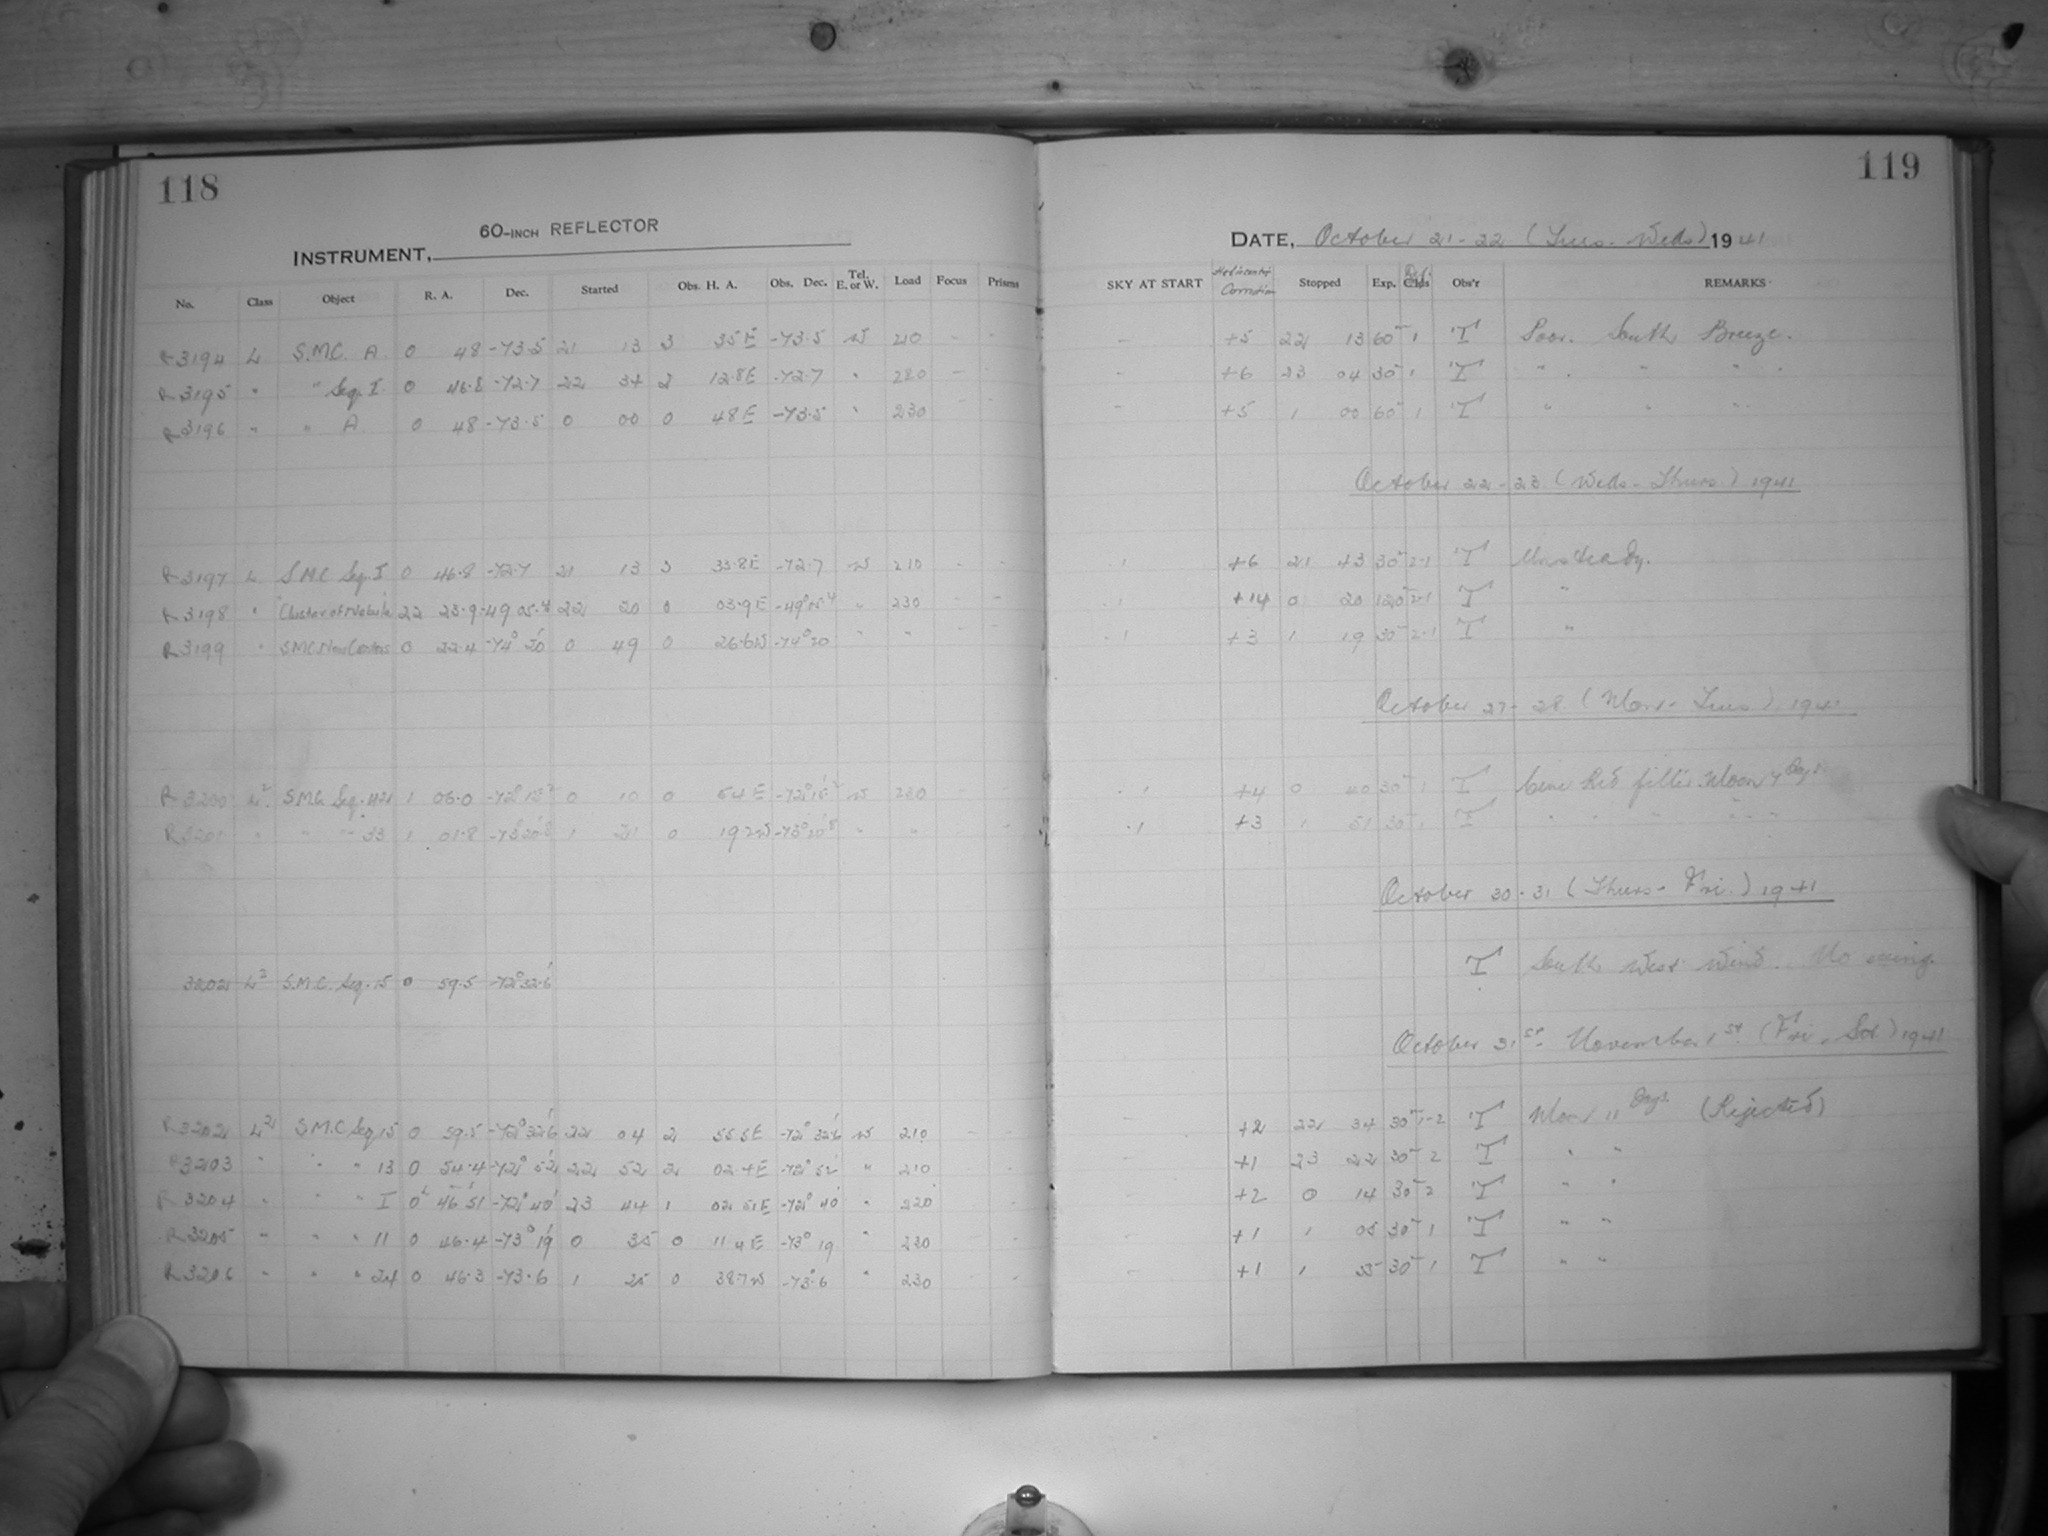 118
INSTRUMENT, 60-INCH REFLECTOR
No. Class Object R. A. Dec. Started Obs. H. A. Obs. Dec. Tel. E. or W. Load Focus Prisms
R3194 L S.M.C. A 0 48 -73.5 21 13 3 35E -73.5 W 210 - -
R3195 " " Seq. I 0 46.8 -72.7 22 34 2 12.8E -72.7 " 220 - -
R3196 " " A 0 48 -73.5 0 00 0 48E -73.5 " 230
R3197 L S.M.C Seq. I 0 46.8 -72.7 21 13 3 33.8E -72.7 W 210 - -
R3198 " Cluster of Nebulae 22 23.9 -49 05.4 22 20 0 03.9E -49°05.4 " 230 - -
R3199 " S.M.C. New Centers 0 22.4 -74° 20' 0 49 0 26.6W -74°20 " " - -
R3200 L2 S.M.C. Seq. 1 06.0 0 10 0 54E W 220
R3201 " " " 33 1 01.8 -73°20.8 1 21 0 19.2W -73°20.8 " "
3202 L2 S.M.C. Seq. 15 0 59.5 -72°32.6'
R3202 L2 S.M.C Seq 15 0 59.5 -72°32.6' 22 04 2 55.5E -72°32.6 W 210
R3203 " " " 13 0 54.4 -72° 52' 22 52 2 02.4E -72° 52' " 210
R3204 " " " I 0 46 51 -72° 40' 23 44 1 02 51E -72° 40' " 220
R3205 " " " 11 0 46.4 -73° 19' 0 35 0 11.4E -73° 19 " 220
R3206 " " " 24 0 46.3 -73.6 1 25 0 38.7W -73.6 " 230
119
DATE, October 21-22 (Tues-Weds) 1941
SKY AT START Heliocentric Correction Stopped Exp. Obs'r REMARKS
- +5 22 13 60 1 T Poor. South Breeze.
- +6 23 04 30 1 T " " "
- +5 1 00 60 1 T " " "
October 22-23 (Weds-Thurs) 1941
1 +6 21 43 30 2-1 T Unsteady.
1 +14 0 20 120 2-1 T "
1 +3 1 19 30 2-1 T "
October 27-28 (Mon-Tues) 1941
1 +4 0 40 30 1 T Cine Red filter. Moon 7 Days.
1 +3 1 51 30 1 T " " " " "
October 30-31 (Thurs-Fri.) 1941
T South West Wind. No seeing.
October 31st - November 1st (Fri, Sat) 1941
- +2 22 34 30 1-2 T Moon 11 Days. (Rejected)
+1 23 22 30 2 T " "
+2 0 14 30 2 T " "
+1 1 05 30 1 T " "
+1 1 55 30 1 T " "